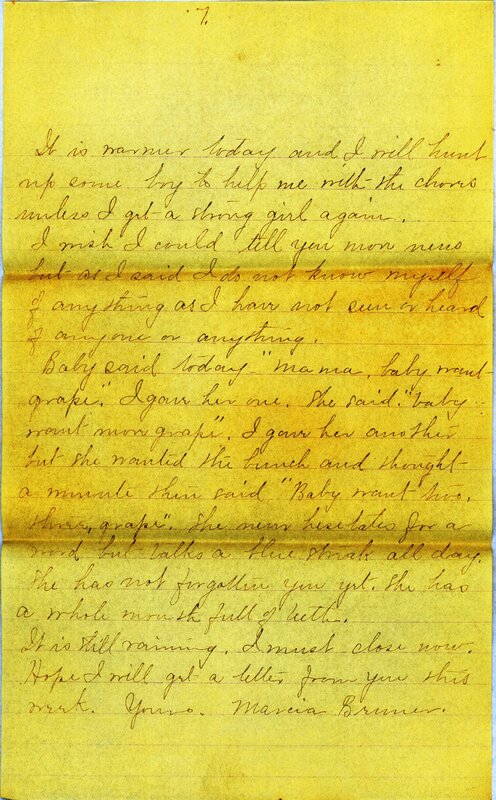 7.
It is warmer today and I will hunt
up some boy to help me with the chores
unless I get a strong girl again.
I wish I could tell you more news
but as I said I do not know myself
of anything as I have not seen or heard
of anyone or anything.
Baby said today - "Mama, baby want
grape." I gave her one. She said, "baby
want more grape". I gave her another
but she wanted the bunch and thought
a minute then said "Baby want two,
three, grape". She never hesitates for a
word but talks a blue streak all day.
She has not forgotten you yet. She has
a whole mouth full of teeth.
It is still raining. I must close now.
Hope I will get a letter from you this
week. Yours. Marcia Bruner.